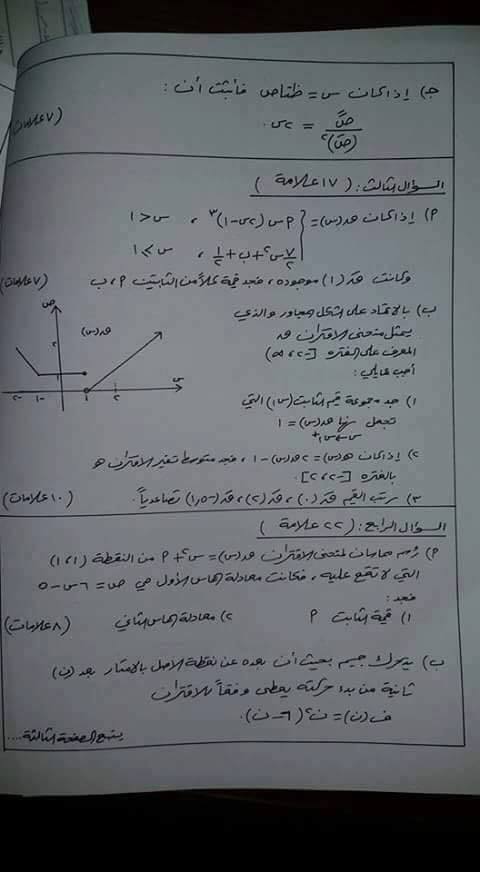 جـ) إذا كان س = ظتا ص فأثبت أن :
صً / (صَ)² = ٢س. (٧ علامات)
السؤال الثالث : ( ١٧ علامة )
م) إذا كان ق(س) = { م س (٢س - ١)³ ، س > ١
٧/٢ س² + ب + ١/٢ ، س ≤ ١
وكانت قَ(١) موجودة ، فجد قيمة كلاً من الثابتين م ، ب (٧ علامات)
ب) بالاعتماد على الشكل المجاور والذي
يمثل منحنى الاقتران قد
المعرف على الفترة [-٢، ∞)
أجب عما يلي :
ص
٢
ق(س)
١
-٢ -١ ١ ٢ س
١) جد مجموعة قيم الثابت (س١) التي
تجعل نها ق(س) = ١
س←س١+
٢) إذا كان هـ(س) = ٢ق(س) - ١ ، فجد متوسط تغير الاقتران هـ
بالفترة [-٢، ٢].
٣) رتب القيم قَ(٠) ، قَ(٢) ، قَ(-١,٥) تصاعدياً. (١٠ علامات)
السؤال الرابع : ( ٢٢ علامة )
م) رُسم مماسان لمنحنى الاقتران ق(س) = س² + م من النقطة (١،١)
التي لا تقع عليه ، فكانت معادلة المماس الأول هي ص = ٦س - ٥
فجد :
١) قيمة الثابت م ٢) معادلة المماس الثاني (٨ علامات)
ب) يتحرك جسيم بحيث أن بعده عن نقطة الأصل بالأمتار بعد (ن)
ثانية من بدء حركته يعطى وفقاً للاقتران
ف(ن) = ن² (٦ - ن).
يتبع الصفحة الثالثة....